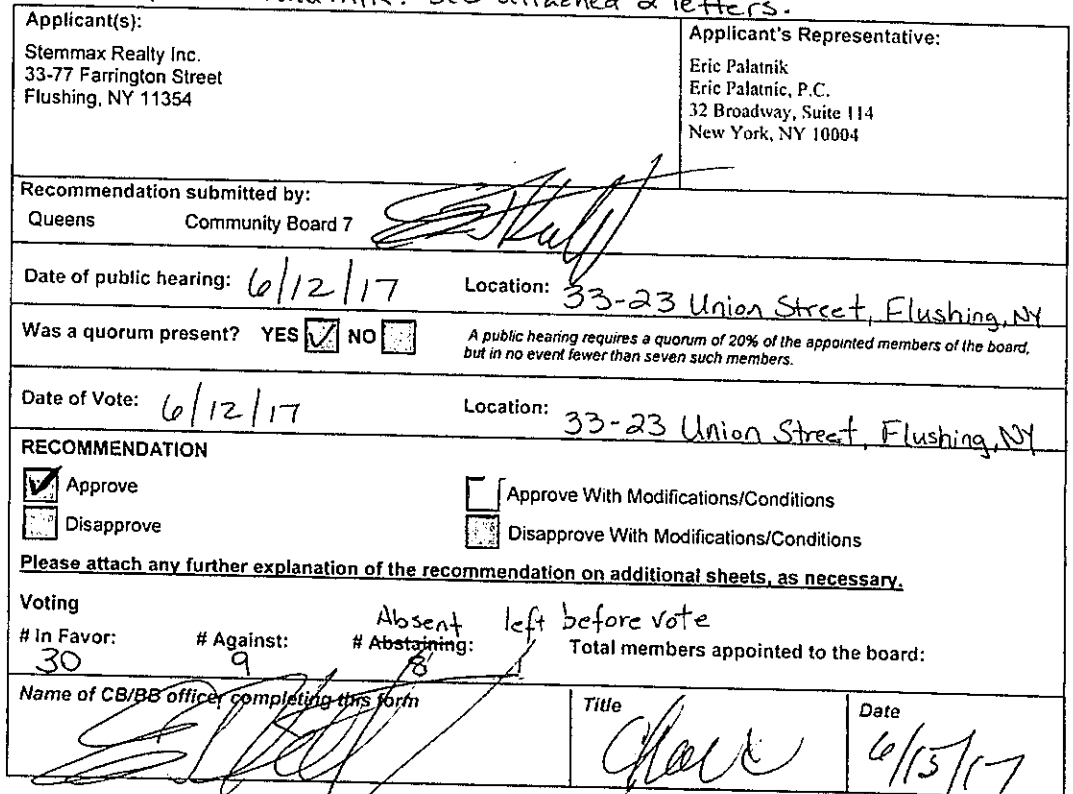 See attached 2 letters.
Applicant(s):
Stemmax Realty Inc.
33-77 Farrington Street
Flushing, NY 11354
Applicant's Representative:
Eric Palatnik
Eric Palatnic, P.C.
32 Broadway, Suite 114
New York, NY 10004
Recommendation submitted by:
Queens Community Board 7
Date of public hearing: 6/12/17 Location: 33-23 Union Street, Flushing, NY
Was a quorum present? YES NO
A public hearing requires a quorum of 20% of the appointed members of the board,
but in no event fewer than seven such members.
Date of Vote: 6/12/17 Location: 33-23 Union Street, Flushing, NY
RECOMMENDATION
Approve Approve With Modifications/Conditions
Disapprove Disapprove With Modifications/Conditions
Please attach any further explanation of the recommendation on additional sheets, as necessary.
Voting
Absent left before vote
# In Favor: # Against: # Abstaining: Total members appointed to the board:
30 9 8 1
Name of CB/BB officer completing this form Title Date
Chair 6/15/17